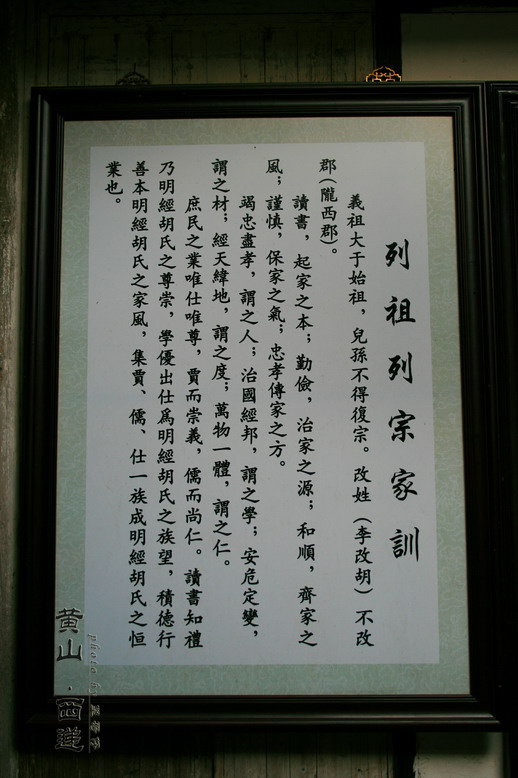 列祖列宗家訓
義祖大于始祖，兒孫不得復宗。改姓（李改胡）不改
郡（隴西郡）。
讀書，起家之本；勤儉，治家之源；和順，齊家之
風；謹慎，保家之氣；忠孝傳家之方。
竭忠盡孝，謂之人；治國經邦，謂之學；安危定變，
謂之材；經天緯地，謂之度；萬物一體，謂之仁。
庶民之業唯仕唯尊，賈而崇義，儒而尚仁。讀書知禮
乃明經胡氏之尊崇，學優出仕爲明經胡氏之族望，積德行
善本明經胡氏之家風，集賈、儒、仕一族成明經胡氏之恒
業也。
黄山·西遞
photo by